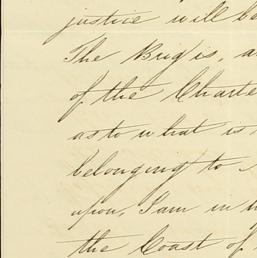 justice will be
The Brig is, a
of the Charte
as to what is
belonging to
upon, I am in
the Coast of